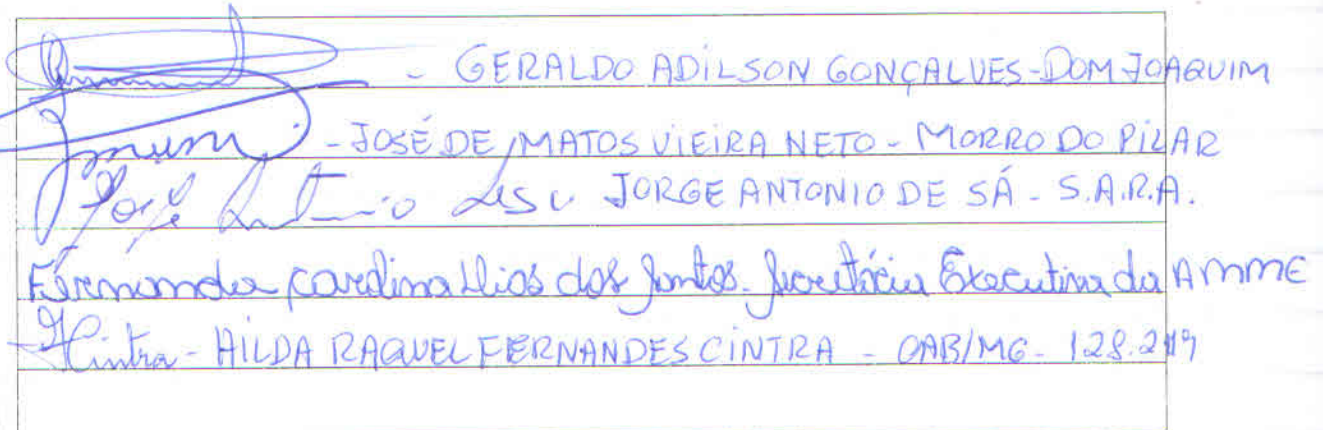 - GERALDO ADILSON GONÇALVES - DOM JOAQUIM
- JOSÉ DE MATOS VIEIRA NETO - MORRO DO PILAR
José Antonio JORGE ANTONIO DE SÁ - S.A.R.A.
Fernanda Carolina Dias dos Santos. Secretária Executiva da AMME
HCintra - HILDA RAQUEL FERNANDES CINTRA - OAB/MG - 128.219